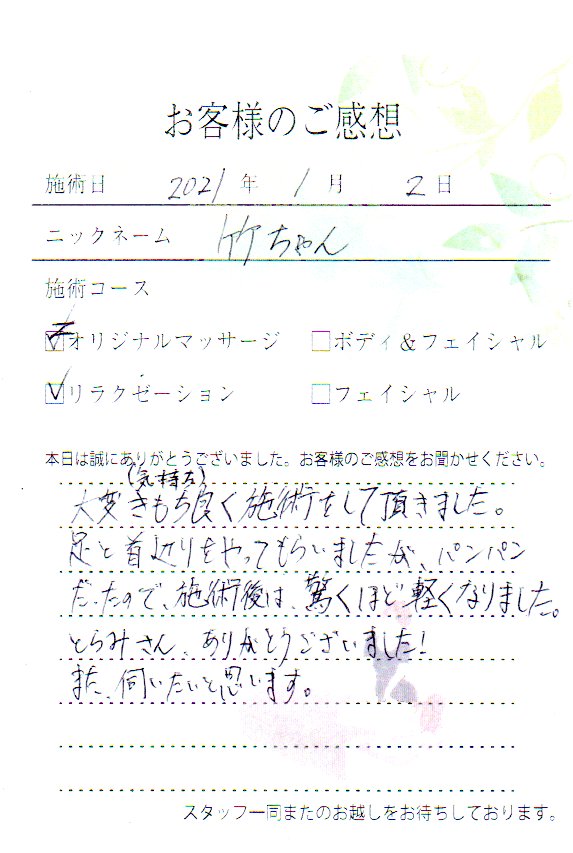 お客様のご感想
施術日 2021年 1月 2日
ニックネーム 竹ちゃん
施術コース
☑オリジナルマッサージ □ボディ&フェイシャル
☑リラクゼーション □フェイシャル
本日は誠にありがとうございました。お客様のご感想をお聞かせください。
(気持ち)
大変きもち良く施術をして頂きました。
足と首辺りをやってもらいましたが、パンパン
だったので、施術後は、驚くほど軽くなりました。
とらみさん、ありがとうございました!
また、伺いたいと思います。
スタッフ一同またのお越しをお待ちしております。